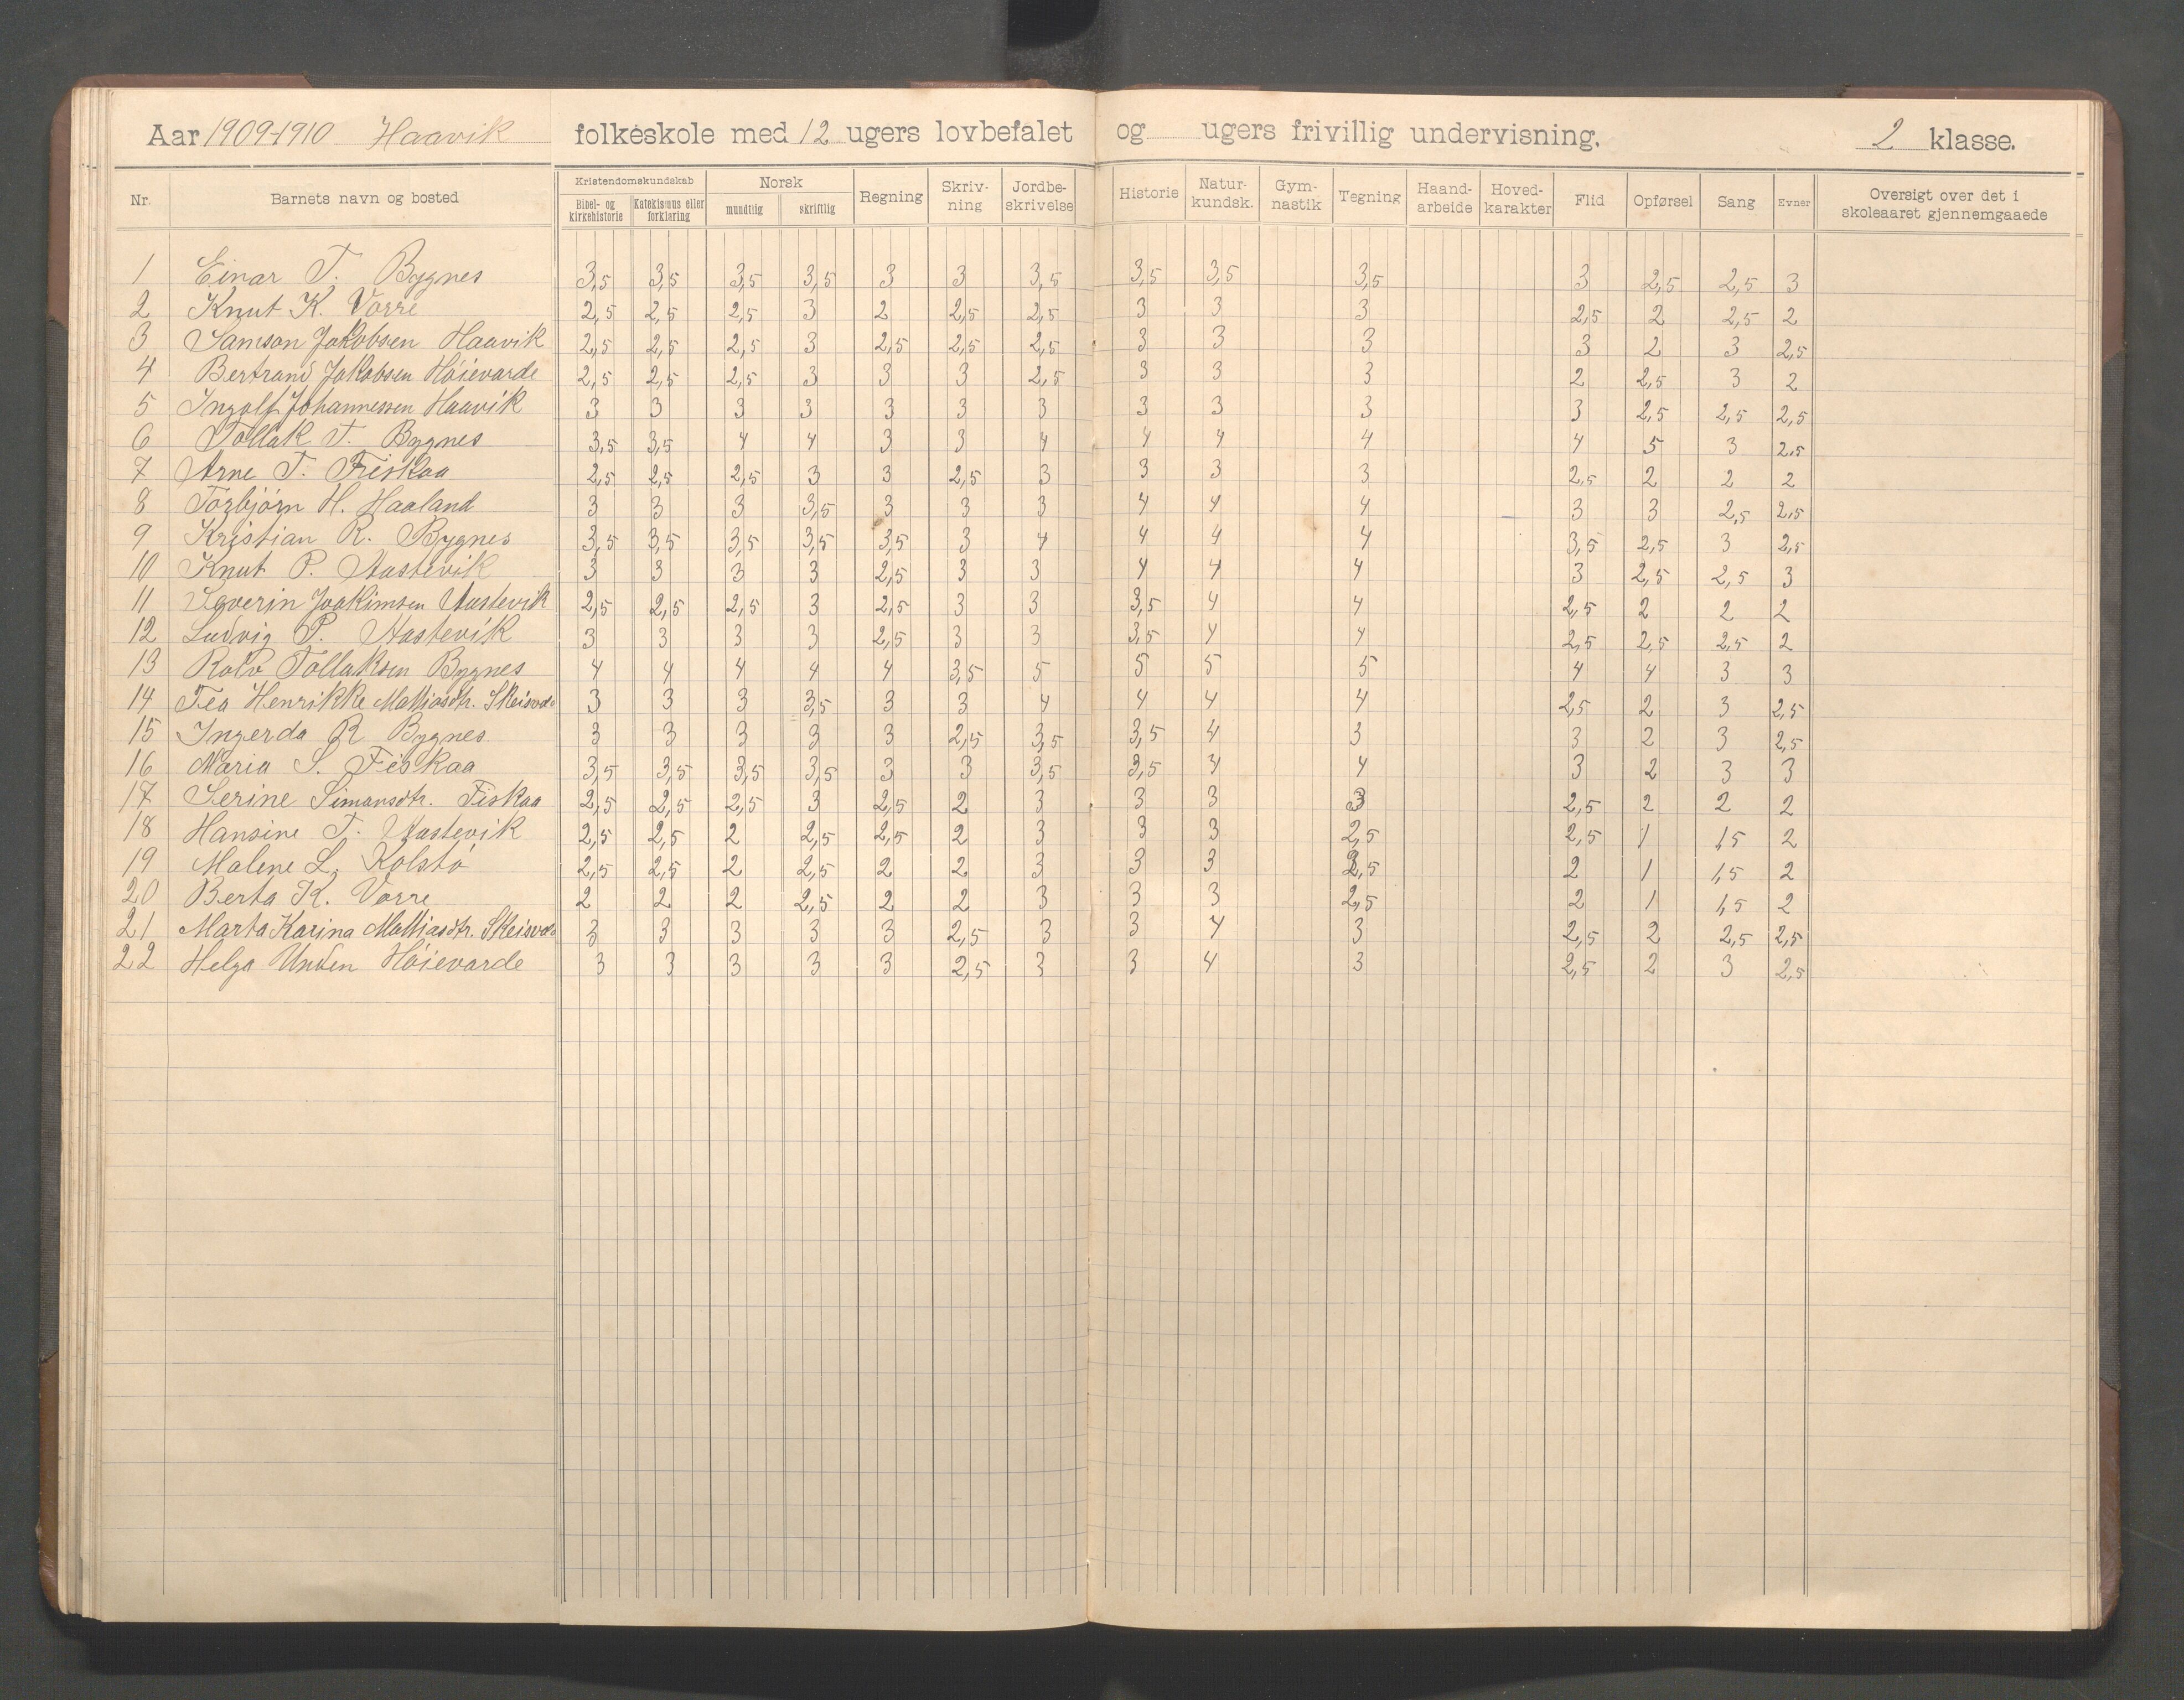 Aar 1909-1910 Haavik folkeskole med 12 ugers lovbefalet og ugers frivillig undervisning. 2 klasse.
Nr. Barnets navn og bosted Kristendomskundskab Bibel- og kirkehistorie Katekismus eller forklaring Norsk mundtlig skriftlig Regning Skriv-ning Jordbe-skrivelse Historie Natur-kundsk. Gym-nastik Tegning Haand-arbeide Hoved-karakter Flid Opførsel Sang Evner Oversigt over det i skoleaaret gjennemgaaede
1 Einar T. Bygnes 3,5 3,5 3,5 3,5 3 3 3,5 3,5 3,5 3,5 3 2,5 2,5 3
2 Knut K. Vorre 2,5 2,5 2,5 3 2 2,5 2,5 3 3 3 2,5 2 2,5 2
3 Samson Jakobsen Haavik 2,5 2,5 2,5 3 2,5 2,5 2,5 3 3 3 3 2 3 2,5
4 Bertrand Jakobsen Höievarde 2,5 2,5 2,5 3 3 3 2,5 3 3 3 2 2,5 3 2
5 Ingolf Johannessen Haavik 3 3 3 3 3 3 3 3 3 3 3 2,5 2,5 2,5
6 Tollak T. Bygnes 3,5 3,5 4 4 3 3 4 4 4 4 4 5 3 2,5
7 Arne T. Friskaa 2,5 2,5 2,5 3 3 2,5 3 3 3 3 2,5 2 2 2
8 Torbjörn H. Haaland 3 3 3 3,5 3 3 3 4 4 4 3 3 2,5 2,5
9 Kristian R. Bygnes 3,5 3,5 3,5 3,5 3,5 3 4 4 4 4 3,5 2,5 3 2,5
10 Knut P. Aastevik 3 3 3 3 2,5 3 3 4 4 4 3 2,5 2,5 3
11 Severin Joakimsen Aastevik 2,5 2,5 2,5 3 2,5 3 3 3,5 4 4 2,5 2 2 2
12 Ludvig P. Aastevik 3 3 3 3 2,5 3 3 3,5 4 4 2,5 2,5 2,5 2
13 Rolv Tollaksen Bygnes 4 4 4 4 4 3,5 5 5 5 5 4 4 3 3
14 Tea Henrikke Mathiasdtr. 3 3 3 3,5 3 3 4 4 4 4 2,5 2 3 2,5
15 Ingerda R Bygnes 3 3 3 3 3 2,5 3,5 3,5 4 3 3 2 3 2,5
16 Maria S. Fiskaa 3,5 3,5 3,5 3,5 3 3 3,5 3,5 4 4 3 2 3 3
17 Serine Simonsdtr. Fiskaa 2,5 2,5 2,5 3 2,5 2 3 3 3 3 2,5 2 2 2
18 Hansine T. Aastevik 2,5 2,5 2 2,5 2,5 2 3 3 3 2,5 2,5 1 1,5 2
19 Malene L. Kolstö 2,5 2,5 2 2,5 2 2 3 3 3 2,5 2 1 1,5 2
20 Berta K. Vorre 2 2 2 2,5 2 2 3 3 3 2,5 2 1 1,5 2
21 Marta Karina Mathiasdtr. 3 3 3 3 3 2,5 3 3 4 3 2,5 2 2,5 2,5
22 Helga Unden Höievarde 3 3 3 3 3 2,5 3 3 4 3 2,5 2 3 2,5